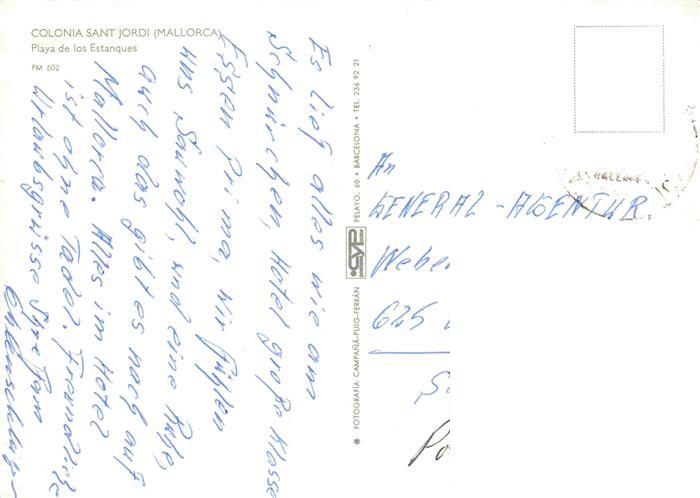 COLONIA SANT JORDI (MALLORCA)
Playa de los Estanques
PM 502
Es lief alles wie am
Schnürchen, Hotel große Klasse
Essen prima, wir fühlen
uns Sauwohl, und eine Ruhe,
auch das gibt es noch auf
Mallorca. Alles im Hotel
ist ohne Tadel. Freundliche
Urlaubsgrüsse Ihre Fam
* FOTOGRAFÍA CAMPAÑÁ-PUIG-FERRÁN
CYP
PELAYO, 60 • BARCELONA • TEL. 236 92 21
An
GENERAL-AGENTUR.
Weber
625